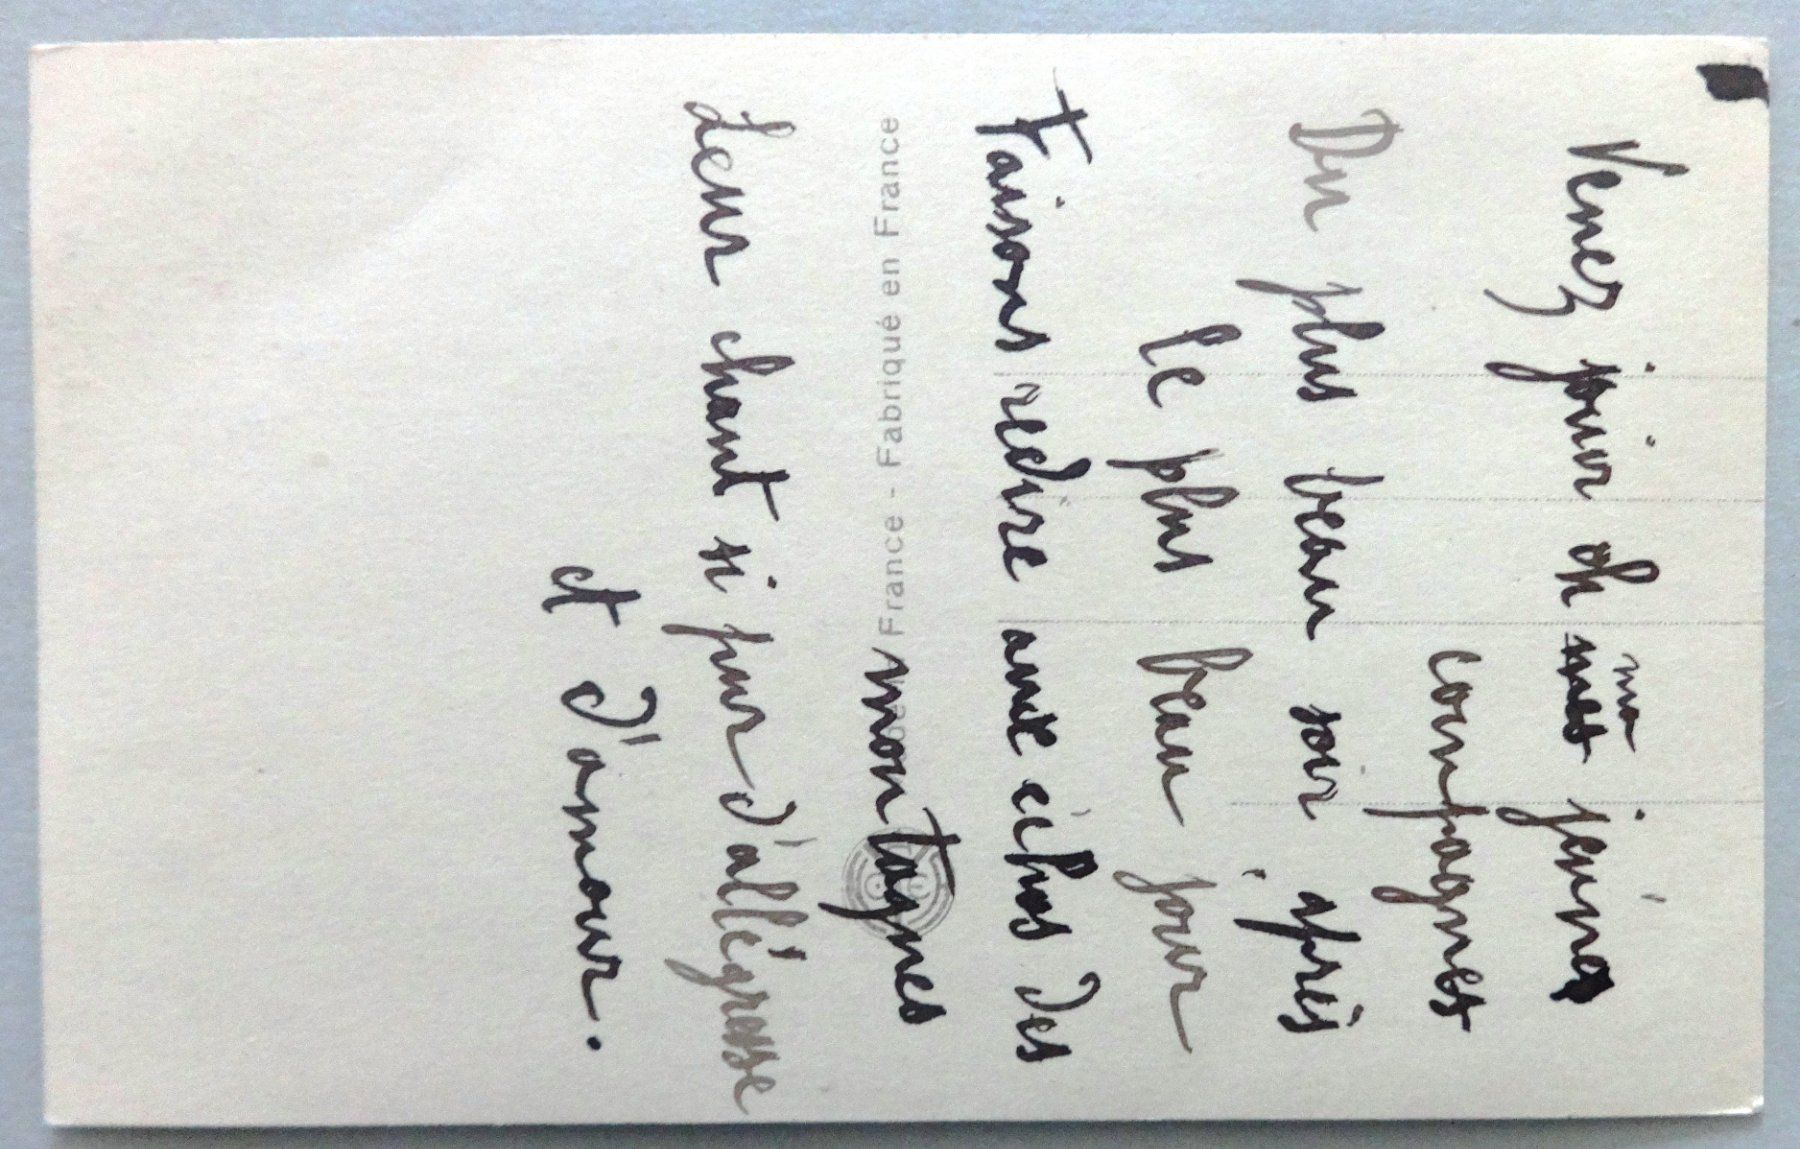 ma
Venez jouir oh mes jeune
compagnes
Du plus beau soir après
le plus beau jour
Faisons redire aux échos des
France - Fabriqué en France
montagnes
Leur chant si pur d'allégresse
et d'amour.